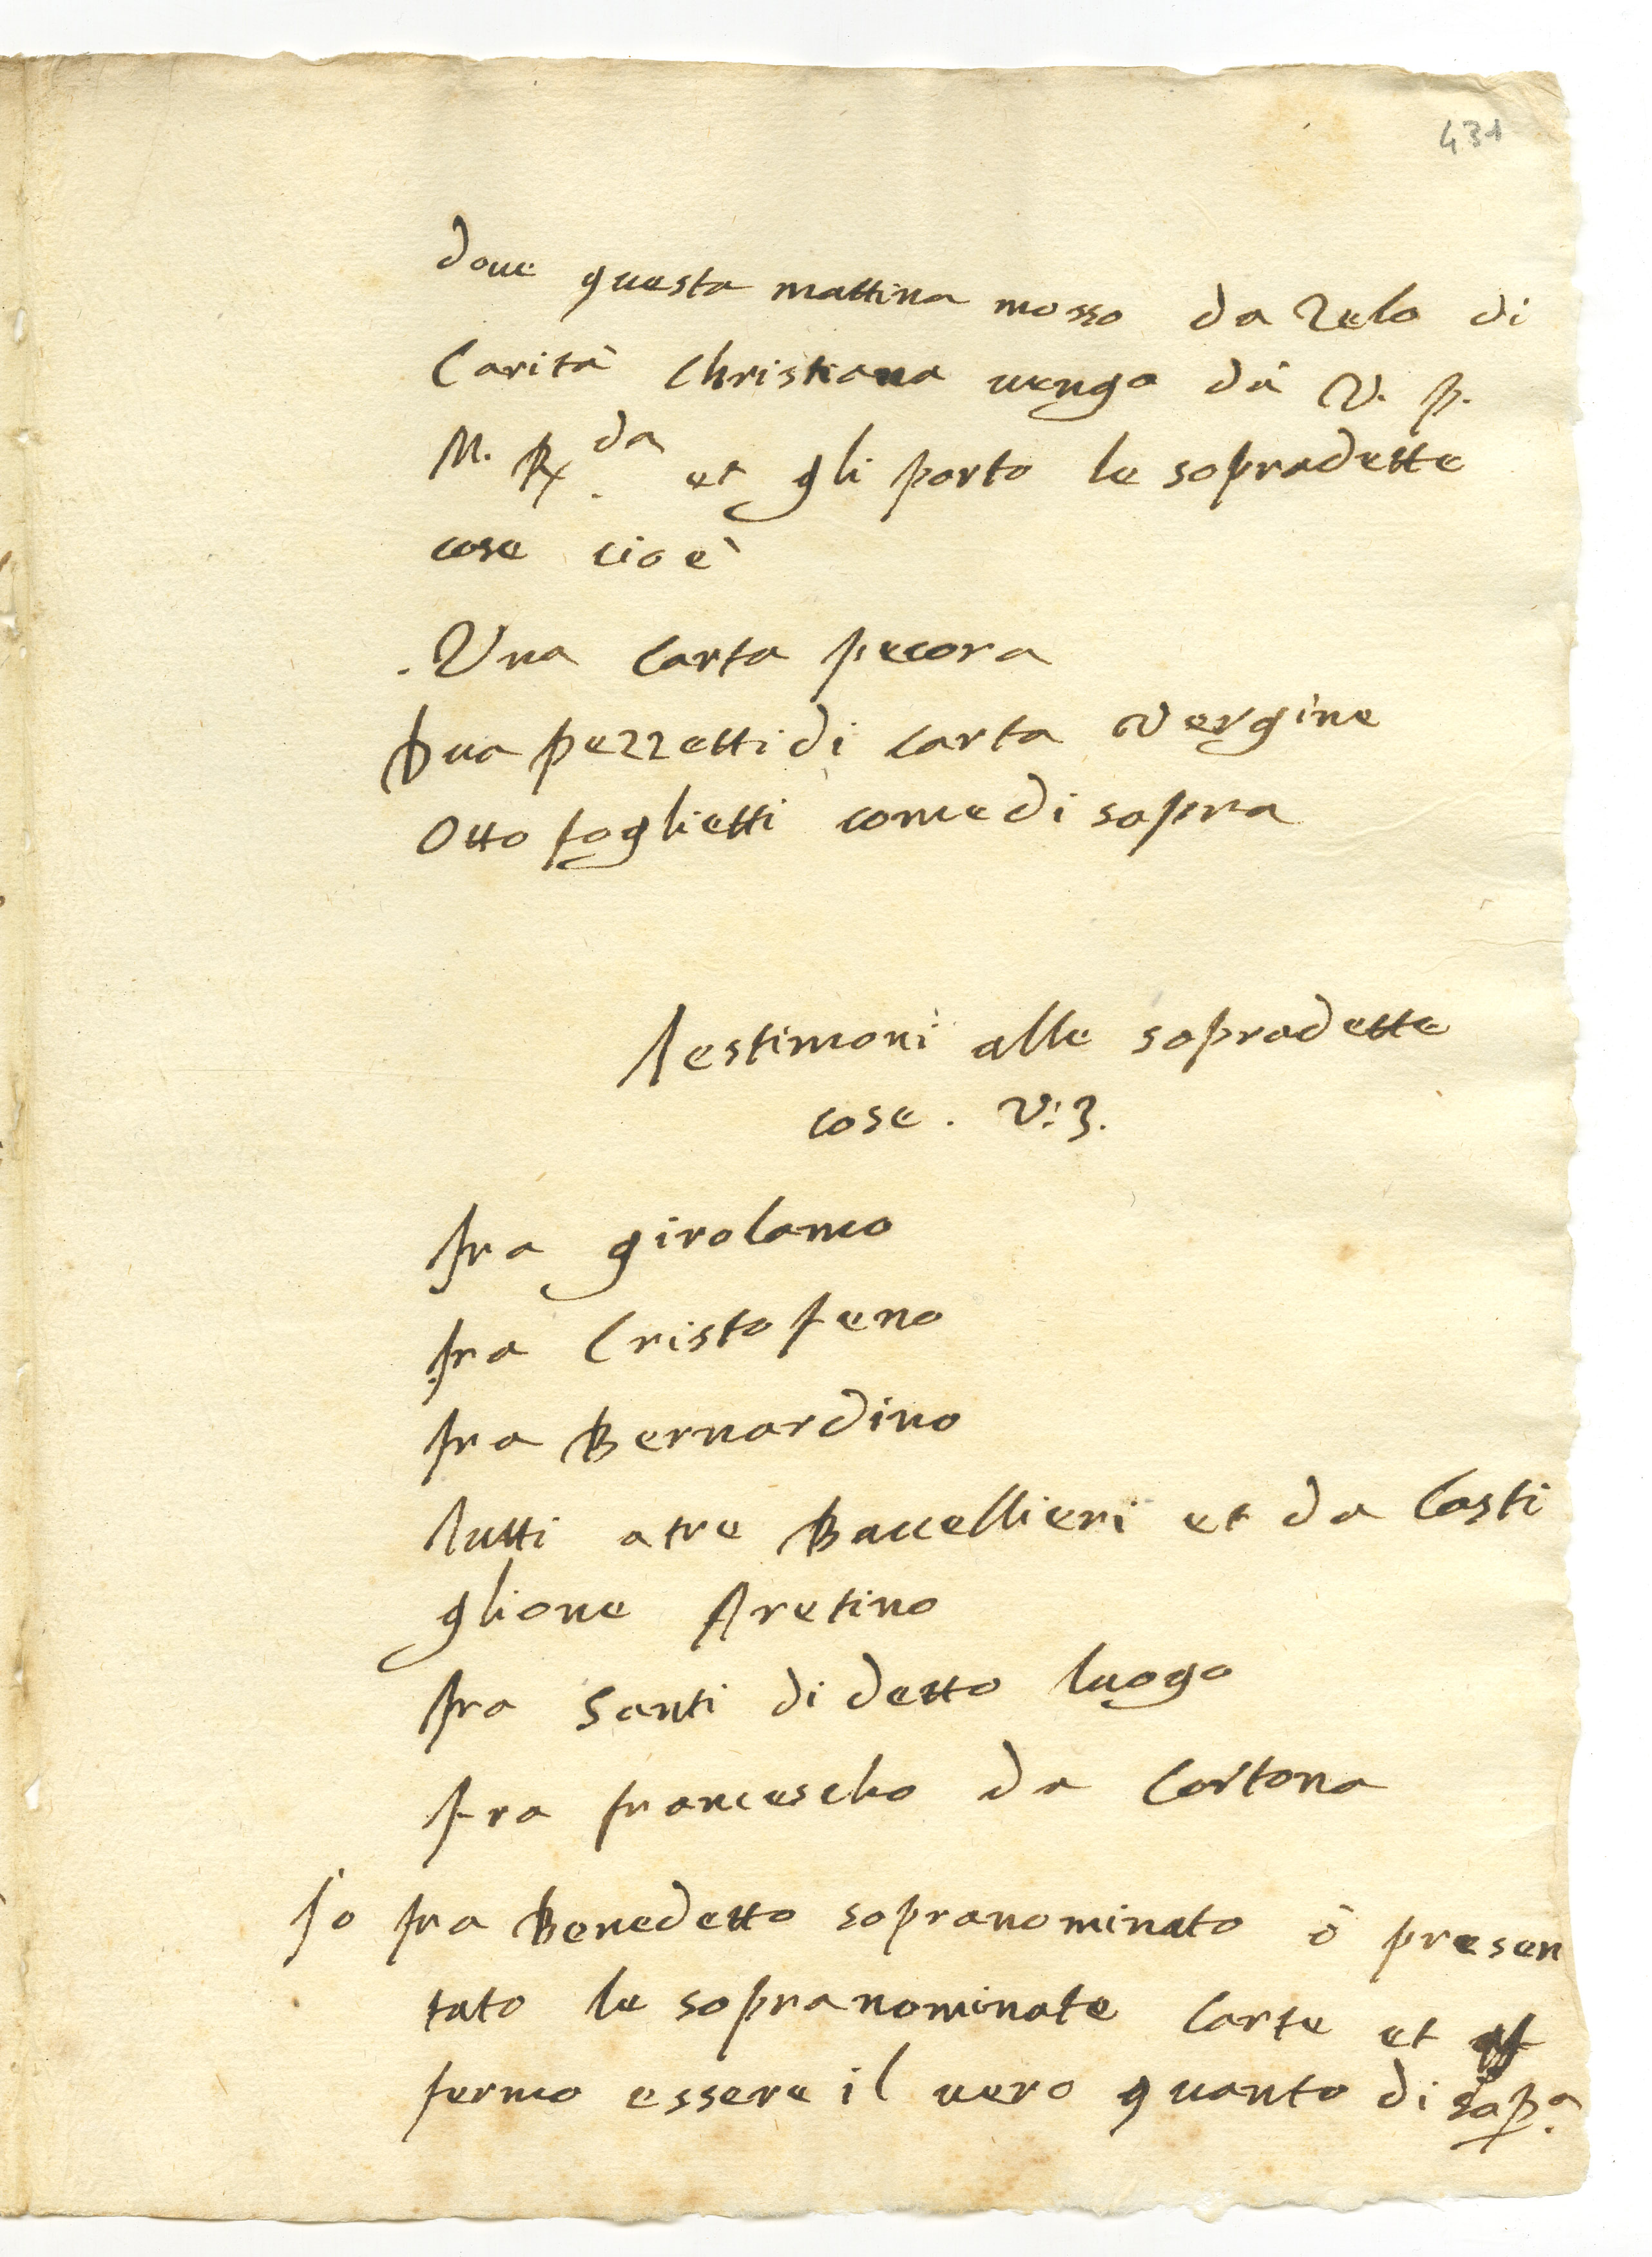 431
doue questa mattina mosso da zelo di
Carità Christiana uengo dà V. P.
M. R.da et gli porto le sopradette
cose cioè
. Vna carta pecora
Dua pezzetti di carta vergine
Otto foglietti come di sopra
Testimoni alle sopradette
cose . V:3.
fra girolamo
fra Cristofeno
fra Bernardino
Tutti atre Baccellieri et da Casti
glione Aretino
fra Santi di detto luogo
fra francescho da Cortona
Io fra Benedetto sopranominato ò presen
tato le sopranominate carte et af
fermo essere il uero quanto di sop.a